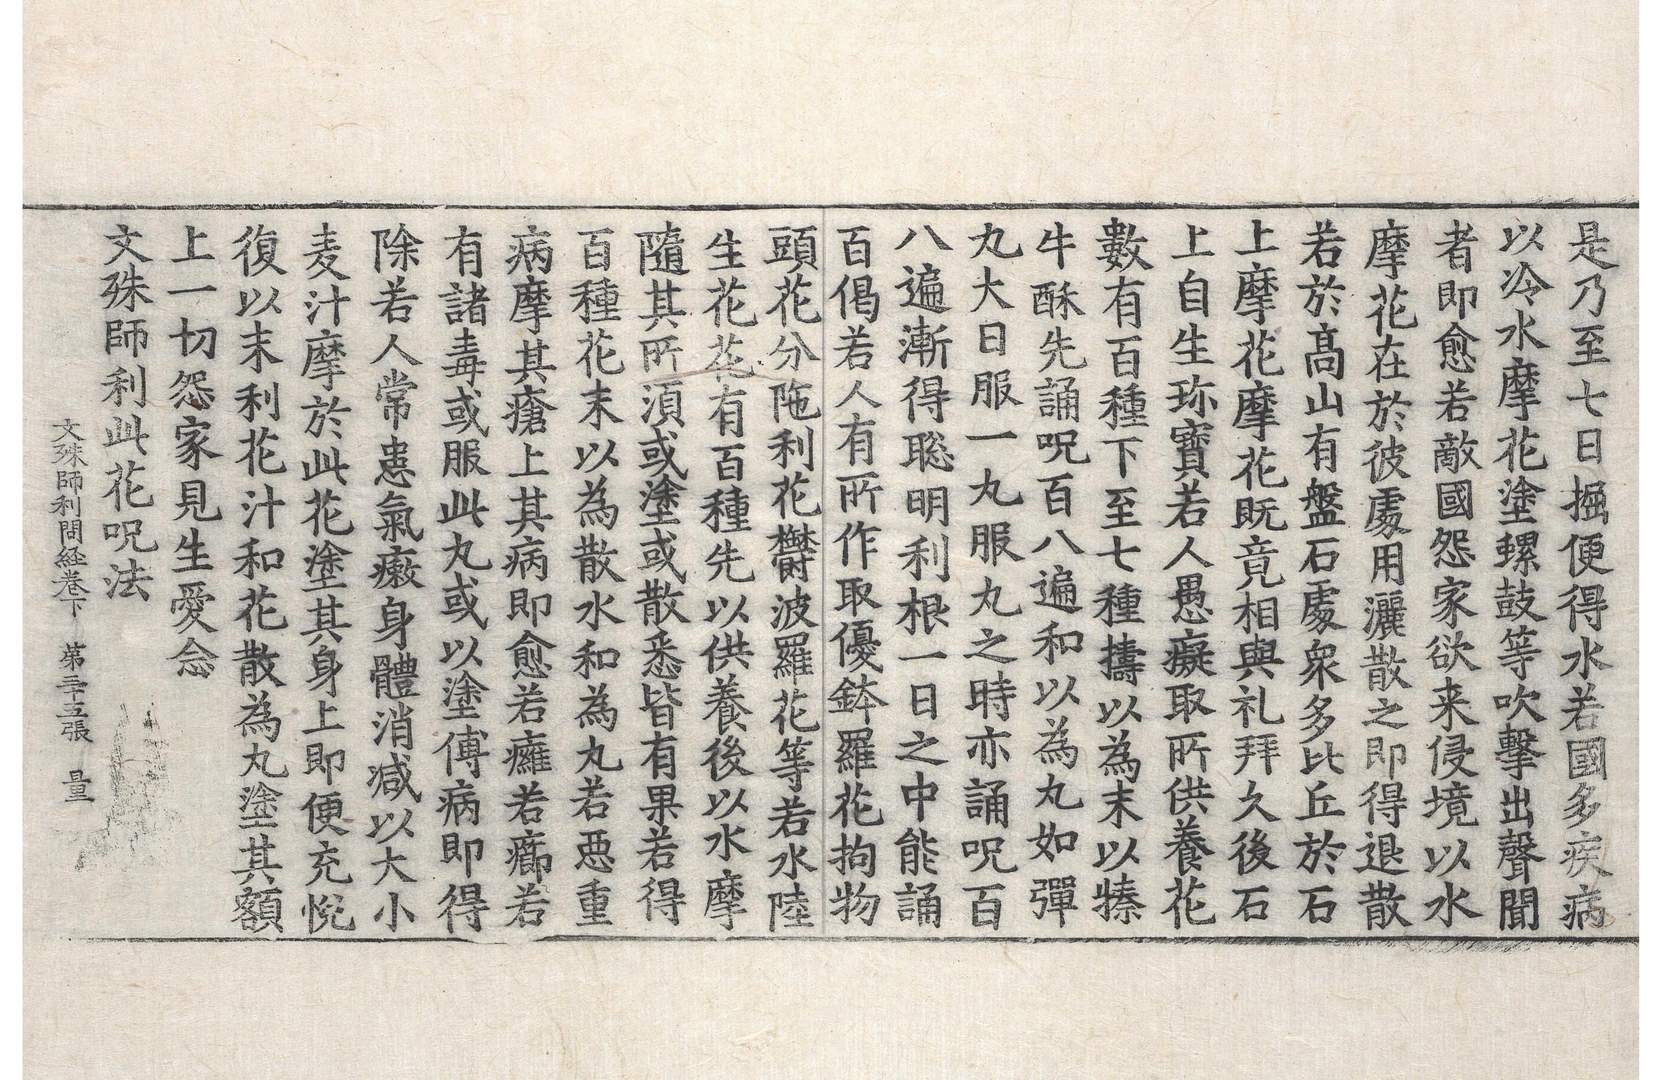 是乃至七日掘便得水若國多疾病
以冷水摩花塗螺鼓等吹擊出聲聞
者即愈若敵國怨家欲来侵境以水
摩花在於彼處用灑散之即得退散
若於髙山有盤石處衆多比丘於石
上摩花摩花既竟相與礼拜久後石
上自生珎寶若人愚癡取所供養花
數有百種下至七種擣以為末以㹛
牛酥先誦呪百八遍和以為丸如彈
丸大日服一丸服丸之時亦誦呪百
八遍漸得聡明利根一日之中能誦
百偈若人有所作取優鉢羅花拘物
頭花分陁利花欝波羅花等若水陸
生花花有百種先以供養後以水摩
隨其所湏或塗或散悉皆有果若得
百種花末以為散水和為丸若惡重
病摩其瘡上其病即愈若癰若癤若
有諸毒或服此丸或以塗傅病即得
除若人常患氣瘶身體消减以大小
麦汁摩於此花塗其身上即便充悅
復以末利花汁和花散為丸塗其額
上一切怨家見生愛念
文殊師利此花呪法
文殊師利問経卷下　第三十五張　量